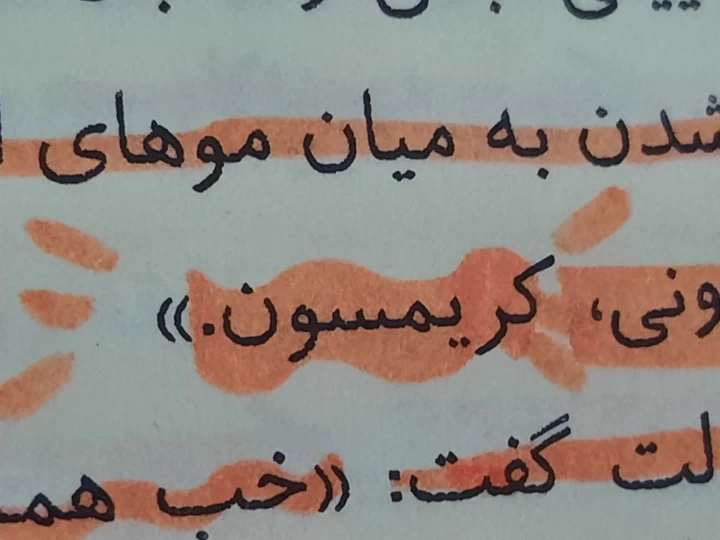 شدن به میان موهای
ونی، کریمسون.»
لت گفت: «خب همـ